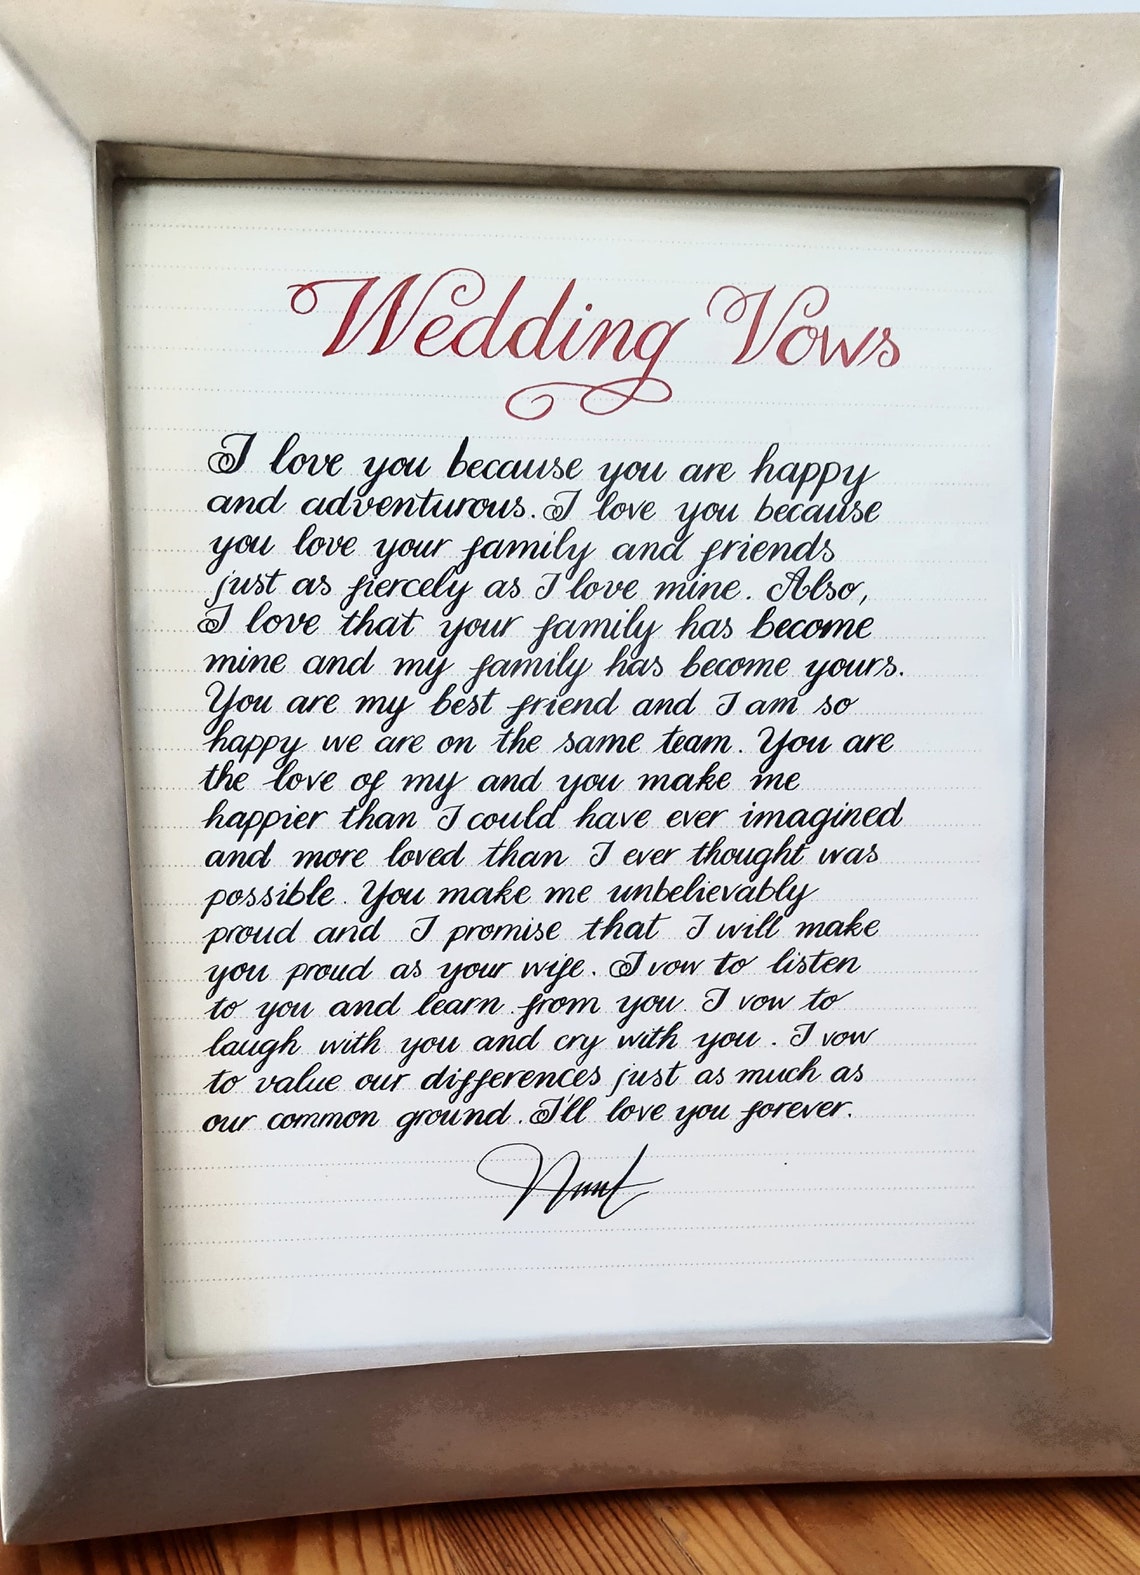 Wedding Vows
I love you because you are happy
and adventurous. I love you because
you love your family and friends
just as fiercely as I love mine. Also,
I love that your family has become
mine and my family has become yours.
You are my best friend and I am so
happy we are on the same team. You are
the love of my and you make me
happier than I could have ever imagined
and more loved than I ever thought was
possible. You make me unbelievably
proud and I promise that I will make
you proud as your wife. I vow to listen
to you and learn from you. I vow to
laugh with you and cry with you. I vow
to value our differences just as much as
our common ground. I'll love you forever.